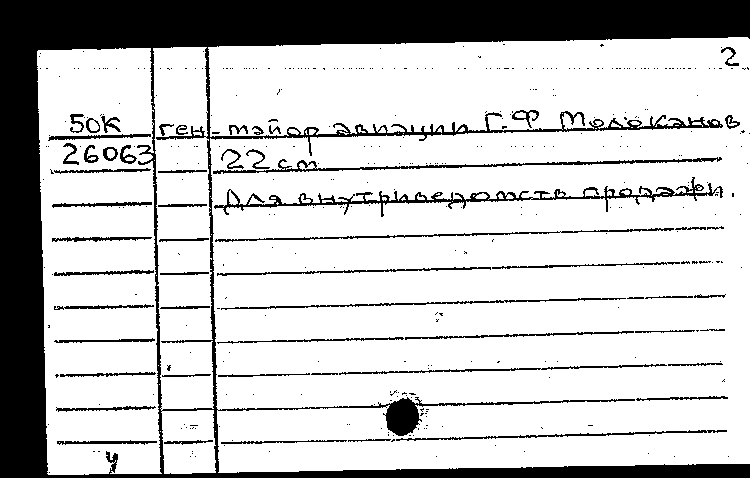 2
50К ген-майор авиации Г.Ф. Молоканов.
26063 22 cm
Для внутриведомств продажи.
у